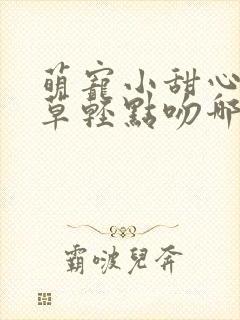 萌寵小甜心
草輕點吻那
霸啵兒奔